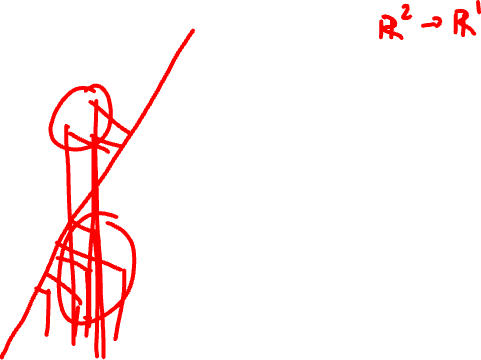 ℝ² → ℝ¹